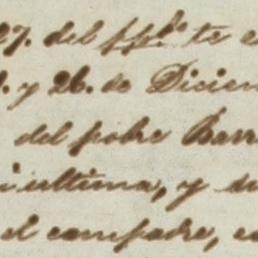 27. del pp.do te e
. y 26. de Diciem
del pobre Barr
i ultima, y su
el compadre, co